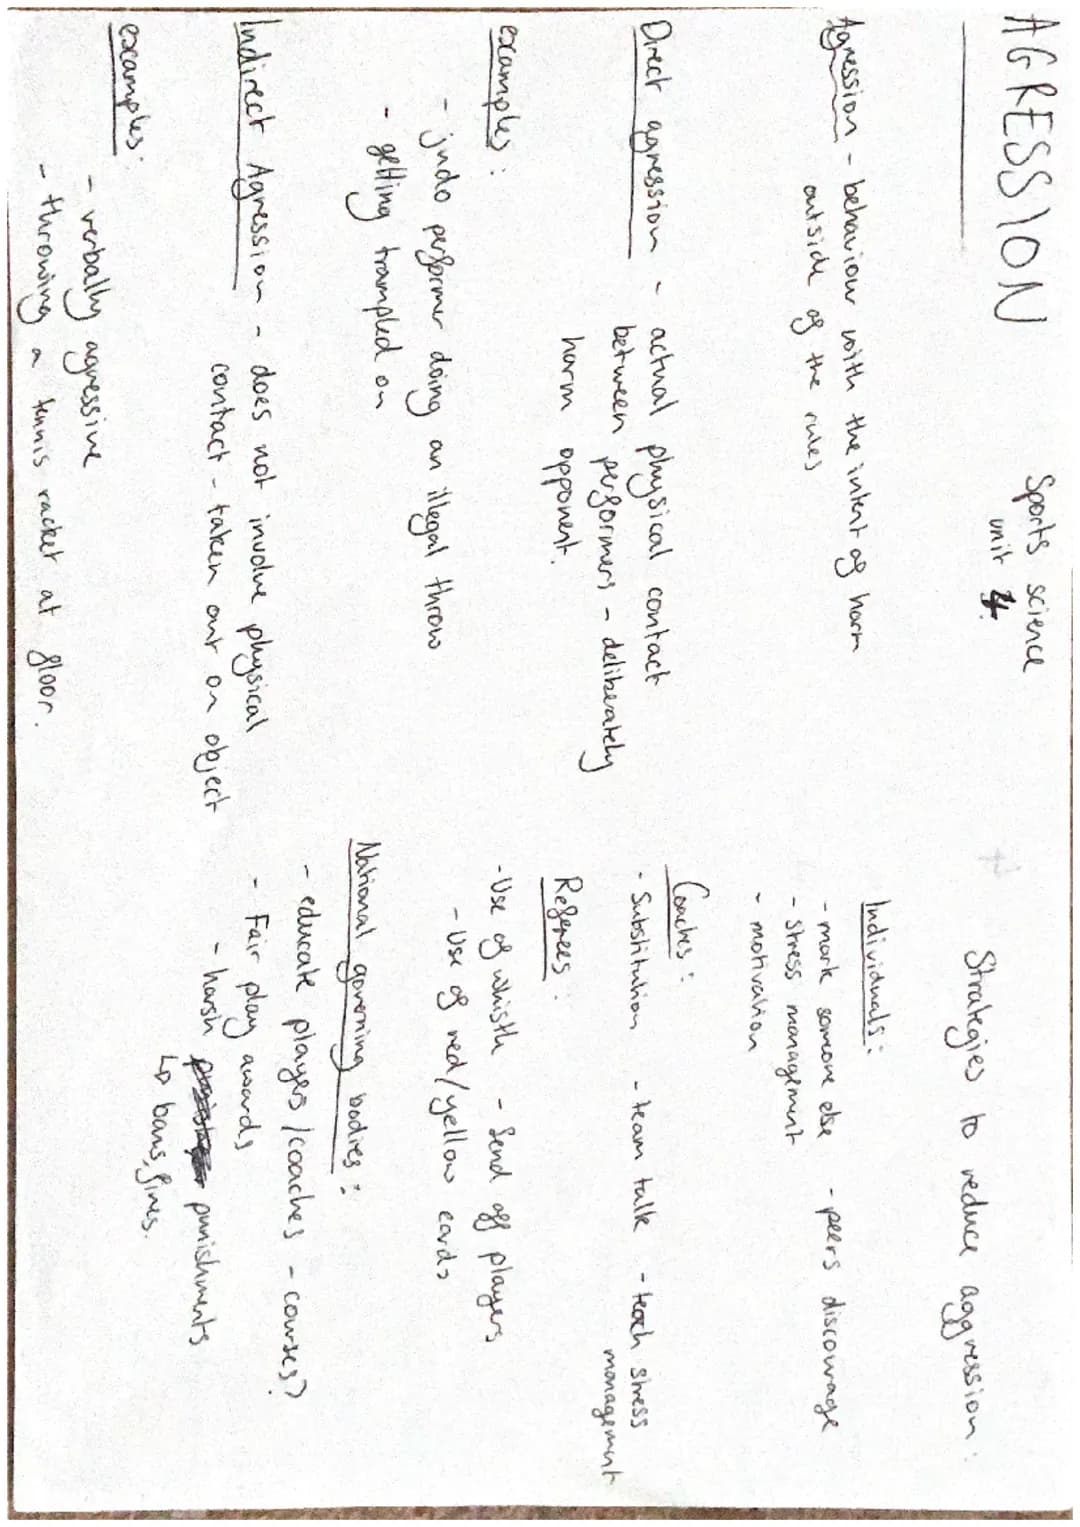 AGRESSION
Sports science
unit 4.
Agression - behaviour with the intent of harm
outside of the rules
Direct agression - actual physical contact
between performers - deliberately
harm opponent.
examples:
- judo performer doing an illegal throw
- getting trampled on
Indirect Agression - does not involve physical
contact - taken out on object
examples:
- verbally agressive
- throwing a tennis racket at floor.
Strategies to reduce aggression:
Individuals:
- mark someone else - peers discourage
- stress management
- motivation
Coaches:
- Substitution - team talk - teach stress
management
Referees:
- Use of whistle - Send off players
- Use of red/yellow cards
National governing bodies:
- educate players/coaches - courses?
- Fair play awards
- harsh punishments
↳ bans, fines.